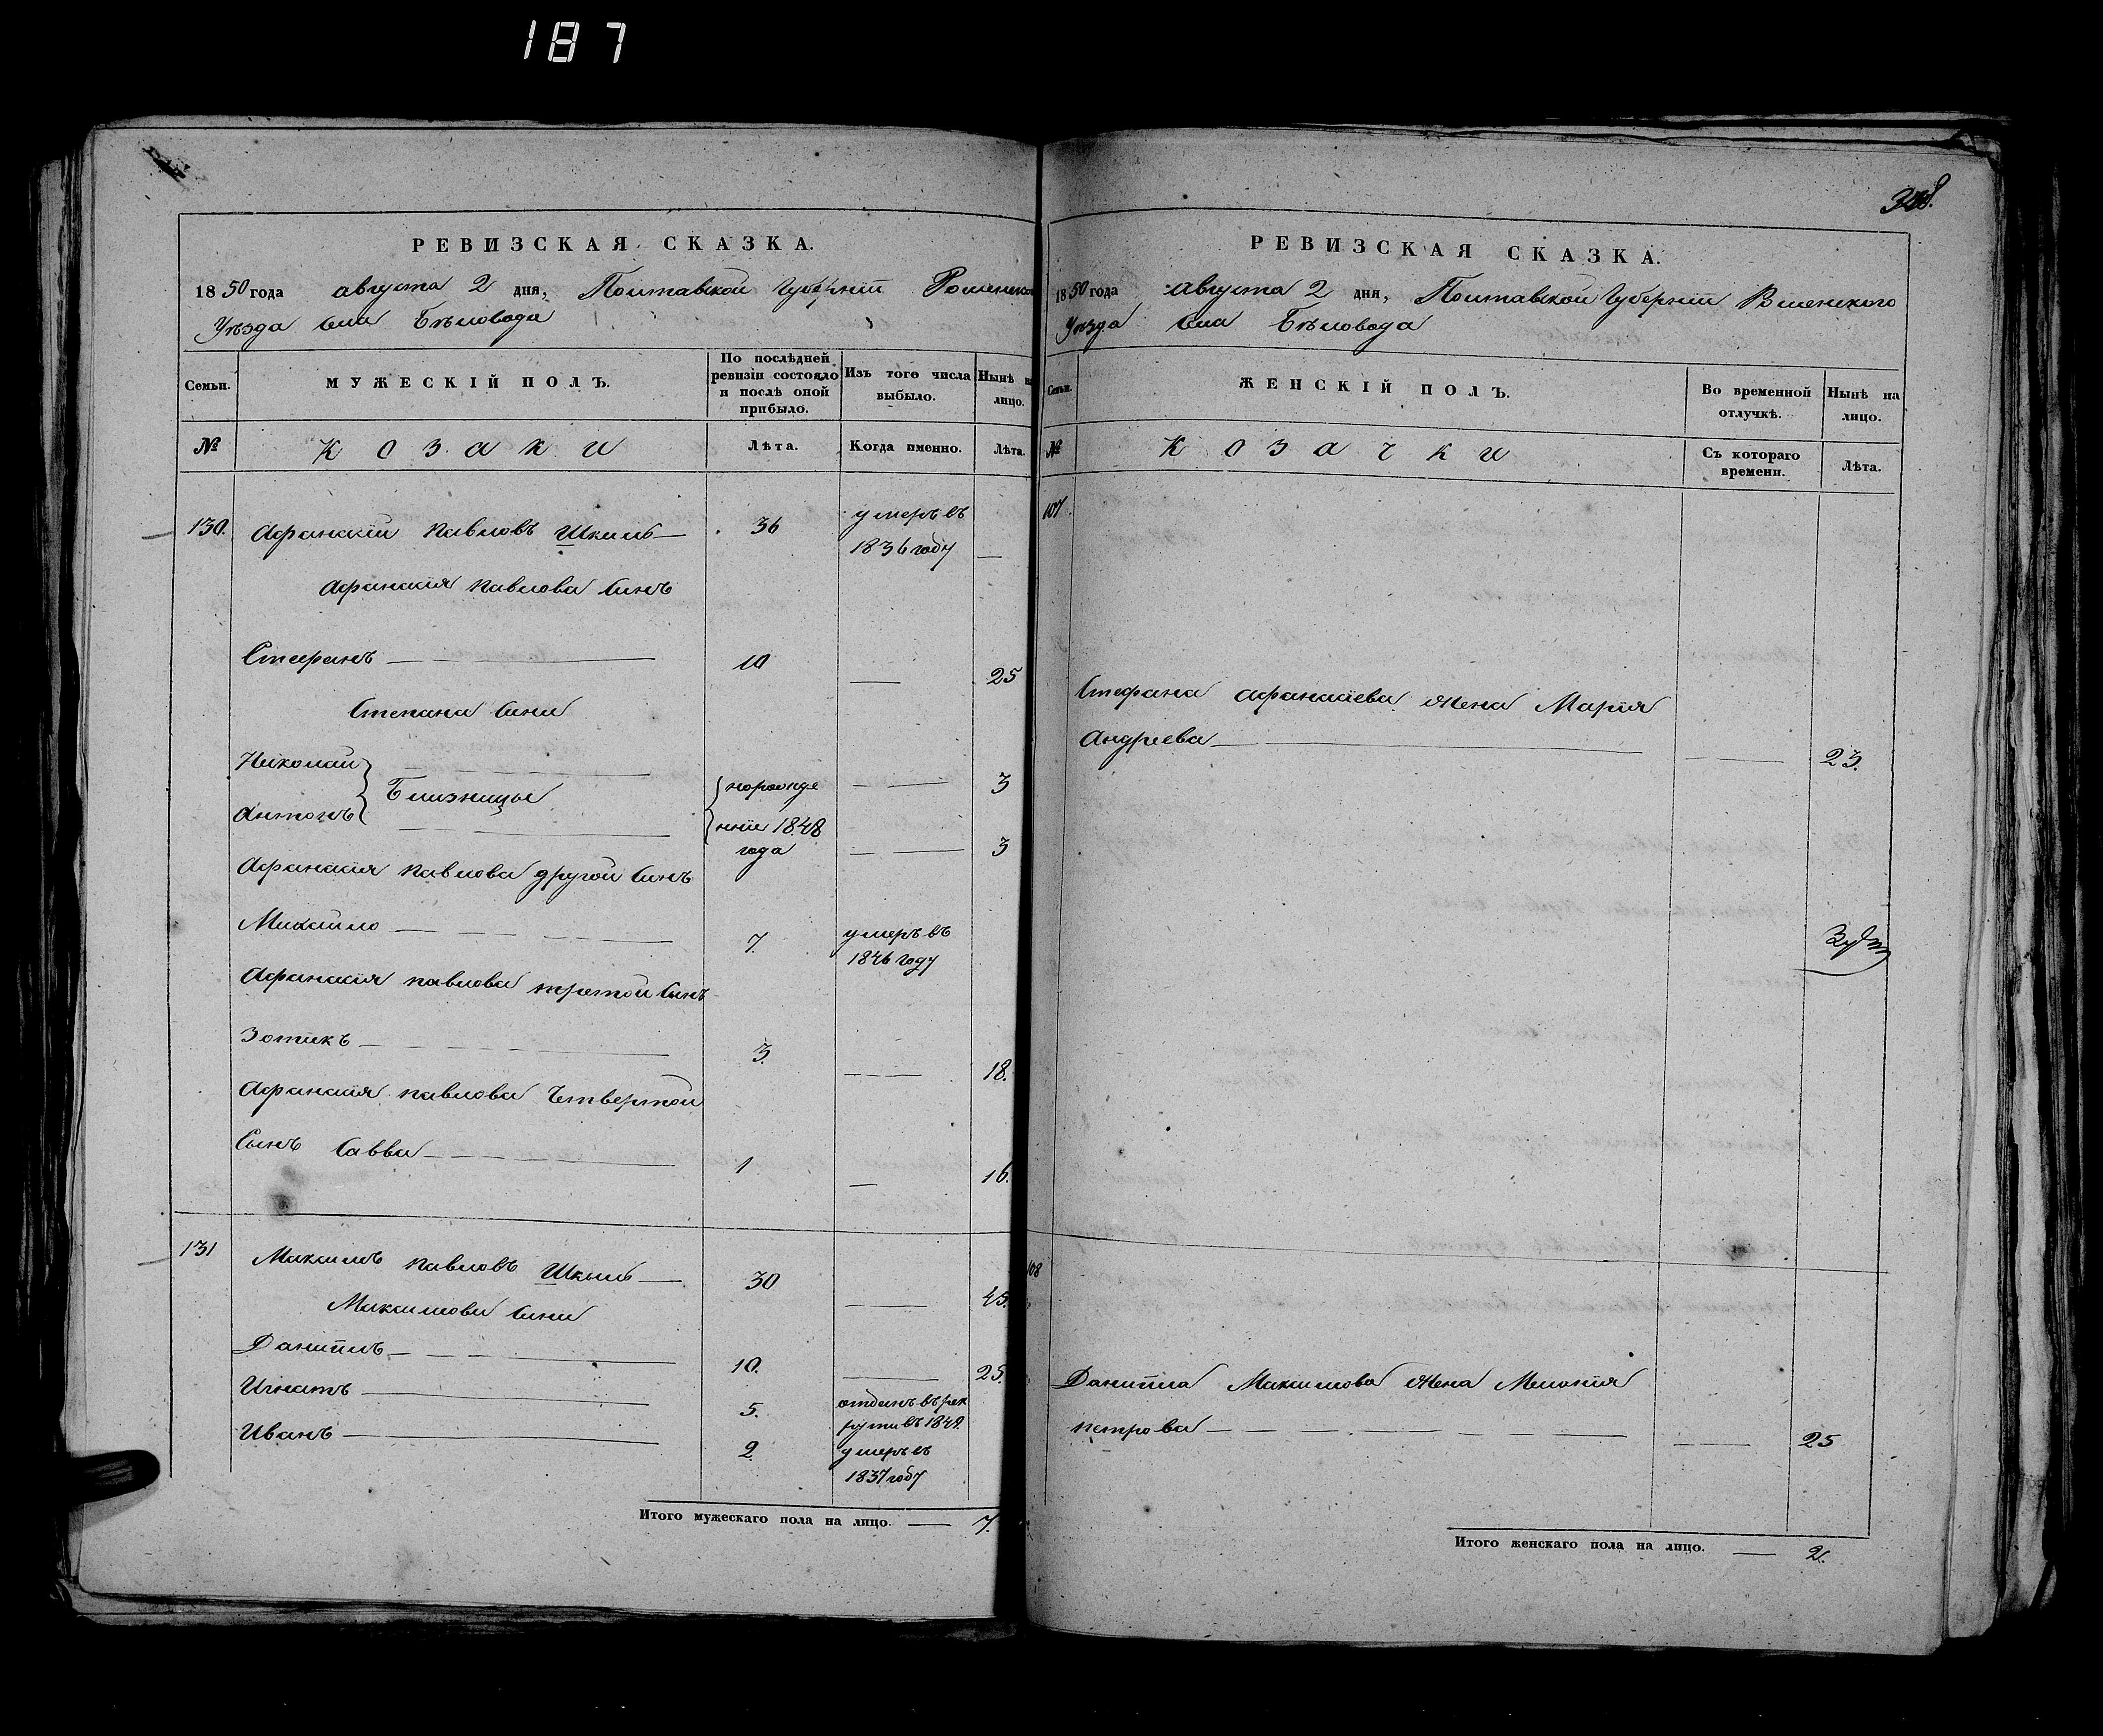 187
308.
РЕВИЗСКАЯ СКАЗКА.
1850 года августа 2 дня, Полтавской Губерніи Роменского
Уѣзда села Бѣловода
Семьи. МУЖЕСКІЙ ПОЛЪ. По послѣдней ревизіи состояло и послѣ оной прибыло. Изъ того числа выбыло. Нынѣ на лицо.
№ Козаки Лѣта. Когда именно. Лѣта.
130. Афанасій Павловъ Шкиль 36 умеръ въ
1836 году
Афанасія Павлова Синъ
Стефанъ 10 25
Степана Сини
Николай 3
Близницы порожде
Антонъ нніе 1848 3
года
Афанасія Павлова другой Синъ
Михайло 7. умеръ въ
1846 году
Афанасія Павлова третой Сынъ
Зотикъ 3. 18.
Афанасія Павлова Четвертой
Сынъ Савва 1 16.
131 Максимъ Павловъ Шкиль 30 45.
Максимова Сини
Даніилъ 10. 25.
Игнатъ 5. отданъ въ рек
руты въ 1848.
Иванъ 2. умеръ въ
1837 году
Итого мужескаго пола на лицо. 7.
РЕВИЗСКАЯ СКАЗКА.
1850 года августа 2 дня, Полтавской Губерніи
Уѣзда села Бѣловода
Семьи. ЖЕНСКІЙ ПОЛЪ. Во временной отлучкѣ. Нынѣ на лицо.
№ Козачки Съ котораго времени. Лѣта.
107.
Стефана Афанасіева жена Марія
Андреева 23.
108
Даніила Максимова жена Меланія
Петрова 25
Итого женскаго пола на лицо. 2.